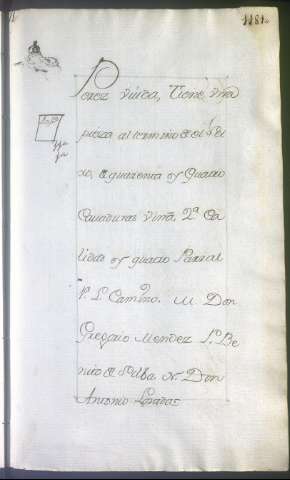 1181.
Perez viuda, tiene una
pieza al termino de el Sei
xo, de quarenta y Quatro
Cavaduras viña, 2ª Ca
lidad y quarto Parral
P. L. Camino. M. Don
Gregorio Mendez P. Be
nito de Silba N. Don
Antonio Losada